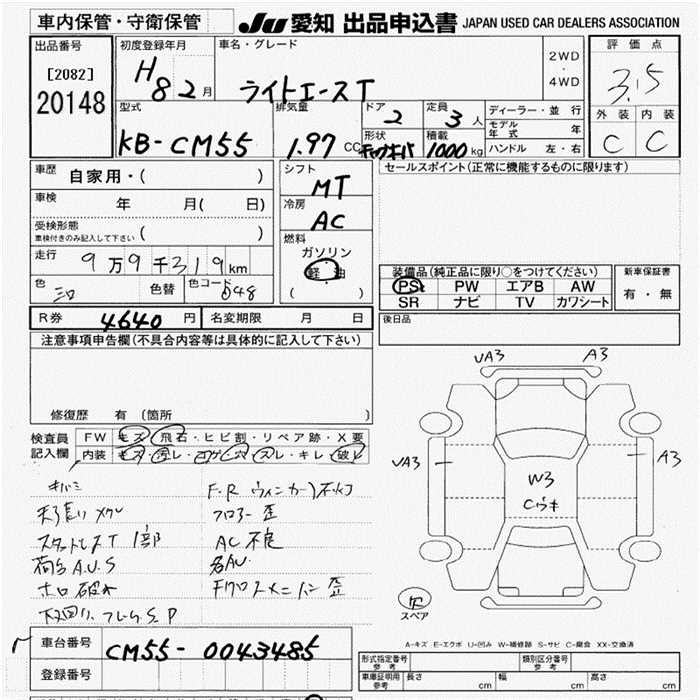 車内保管・守衛保管
JU 愛知 出品申込書 JAPAN USED CAR DEALERS ASSOCIATION
出品番号
[2082]
20148
初度登録年月
H8 2月
車名・グレード
ライトエースT
2WD
・
4WD
評価点
3.5
外装 内装
C C
型式
KB-CM55
排気量
1.97 CC
ドア
2
定員
3人
形状
積載
1000kg
ディーラー・並行
モデル年式 年
ハンドル 左・右
車歴
自家用・( )
車検
年 月( 日)
受検形態
車検付きのみ記入して下さい ( )
走行
9万9千319km
色
色替
色コード
048
シフト
MT
冷房
AC
燃料
ガソリン
・
軽油
( )
セールスポイント(正常に機能するものに限ります)
装備品(純正品に限り○をつけてください)
PS PW エアB AW
SR ナビ TV カワシート
新車保証書
有・無
R券 4640円
名変期限 月 日
後日品
注意事項申告欄(不具合内容等は具体的に記入して下さい)
修復歴 有 (箇所 )
検査員
記入欄
FW キズ・飛石・ヒビ割・リペア跡・X要
内装 キズ・汚レ・コゲ・穴・スレ・キレ・破レ
F.R ウィンカー不灯
スタットレスT 1部
フロアー歪
AC不良
荷台A.U.S
ホロ破れ
UA3 A3
UA3 A3
W3
Cウキ
欠
スペア
A-キズ E-エクボ U-凹み W-補修跡 S-サビ C-腐食 XX-交換済
車台番号
CM55-0043485
登録番号
形式指定番号
参考
類別区分番号
参考
車庫証明用
参考
長さ cm 幅 cm 高さ cm